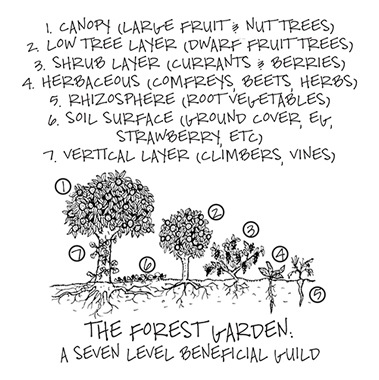 1. CANOPY (LARGE FRUIT & NUT TREES)
2. LOW TREE LAYER (DWARF FRUIT TREES)
3. SHRUB LAYER (CURRANTS & BERRIES)
4. HERBACEOUS (COMFREYS, BEETS, HERBS)
5. RHIZOSPHERE (ROOT VEGETABLES)
6. SOIL SURFACE (GROUND COVER, EG,
STRAWBERRY, ETC)
7. VERTICAL LAYER (CLIMBERS, VINES)
1
2
3
4
5
6
7
THE FOREST GARDEN:
A SEVEN LEVEL BENEFICIAL GUILD